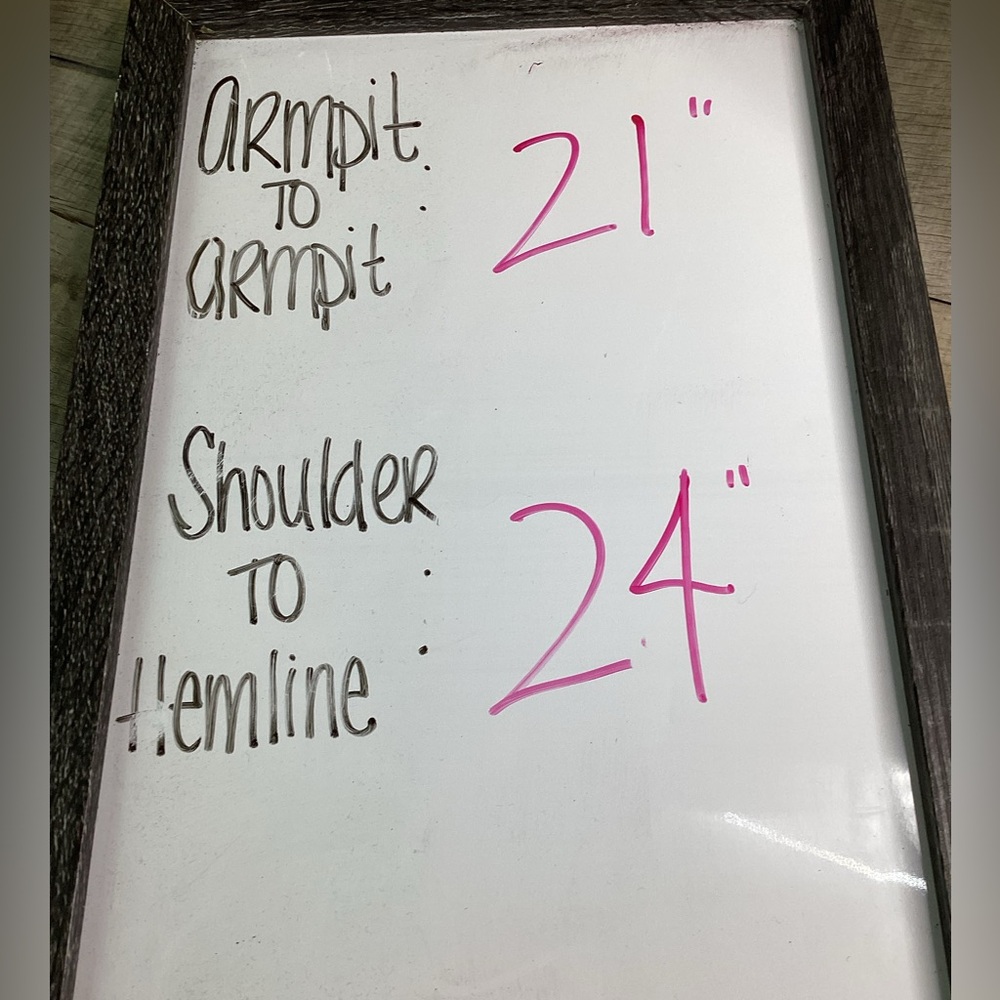 armpit
TO : 21"
armpit
Shoulder
TO : 24"
Hemline